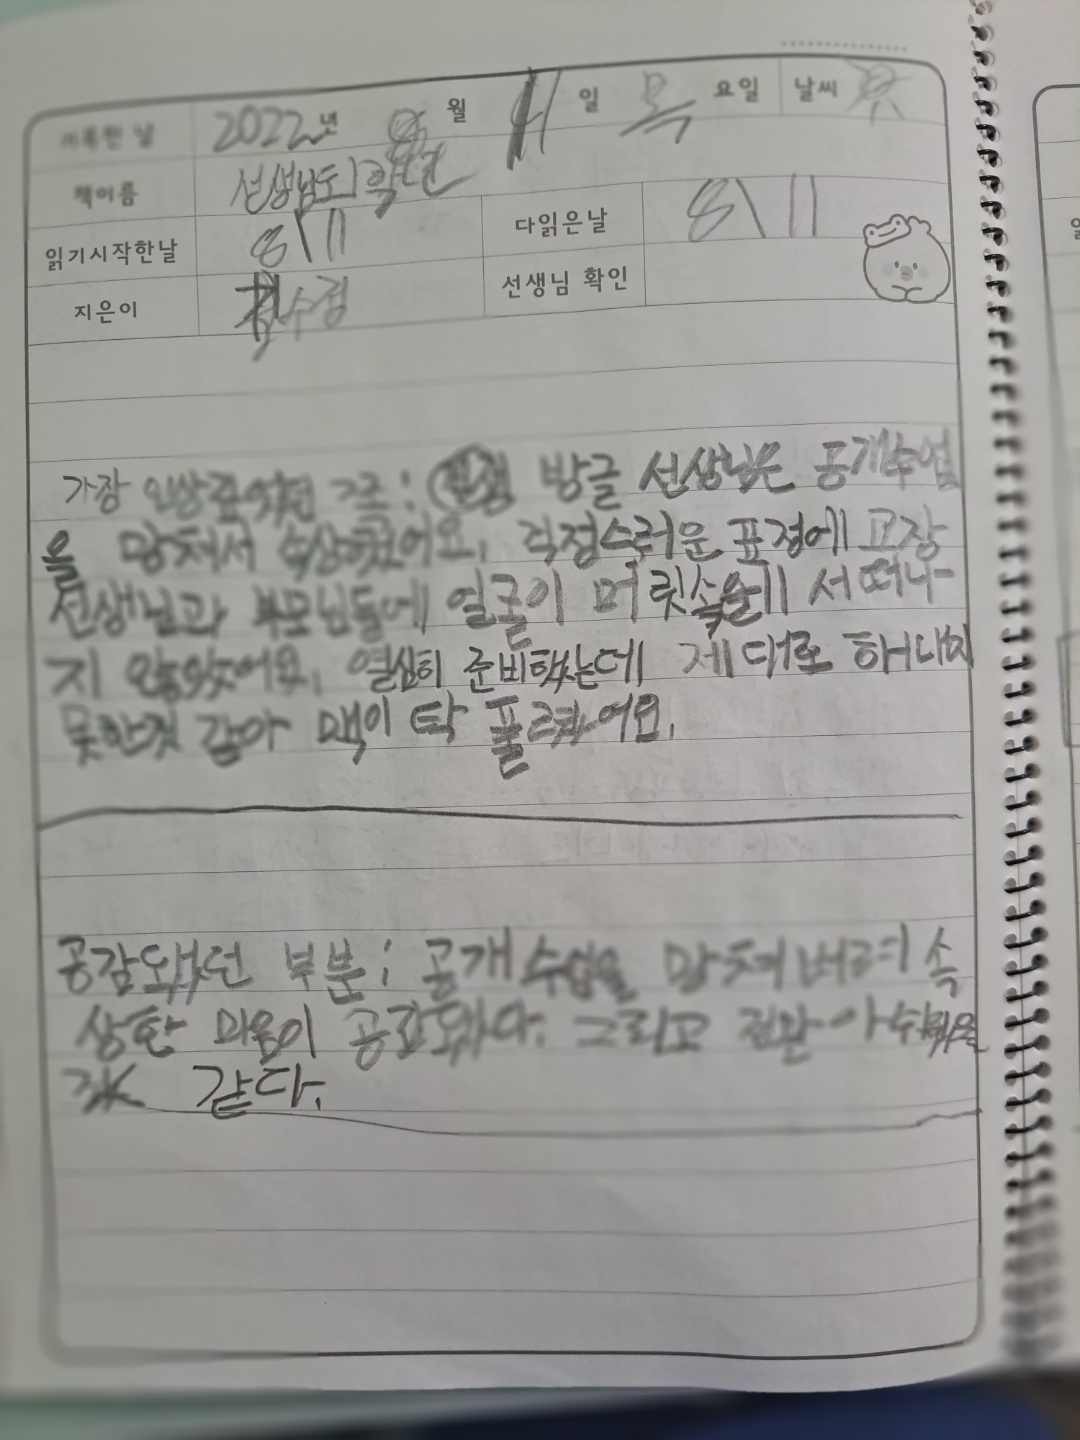 기록한 날 2022년 8월 11일 목요일 날씨
책이름 선생님도 학교
읽기시작한날 8\11 다읽은날 8\11
지은이 수정 선생님 확인
가장 인상깊었던 구조: 방글 선생님은 공개수업
을 망쳐서 속상했어요. 걱정스러운 표정에 교장
선생님과 부모님들에 얼굴이 머릿속을 서 떠나
지 않았어요. 열심히 준비했는데 제대로 하니지
못한것 같아 맥이 탁 풀렸어요.
공감되었던 부분: 공개수업을 망쳐버려 속
상한 마음이 공감되었다. 그리고 정말 아쉬웠을
것 같다.